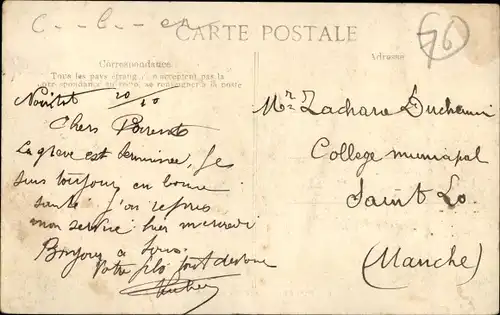 C - - b - - en
CARTE POSTALE
76
Correspondance
Adresse
Tous les pays étrang. n'acceptent pas la
correspondance au recto, se renseigner à la poste
20/10
Chers Parents
La greve est terminée, Je
suis toujours en bonne
santé. J'ai repris
mon service hier mercredi
Bonjour à tous.
Votre fils tout dévoué
Mr Zacharie
College municipal
Saint Lo.
(Manche)